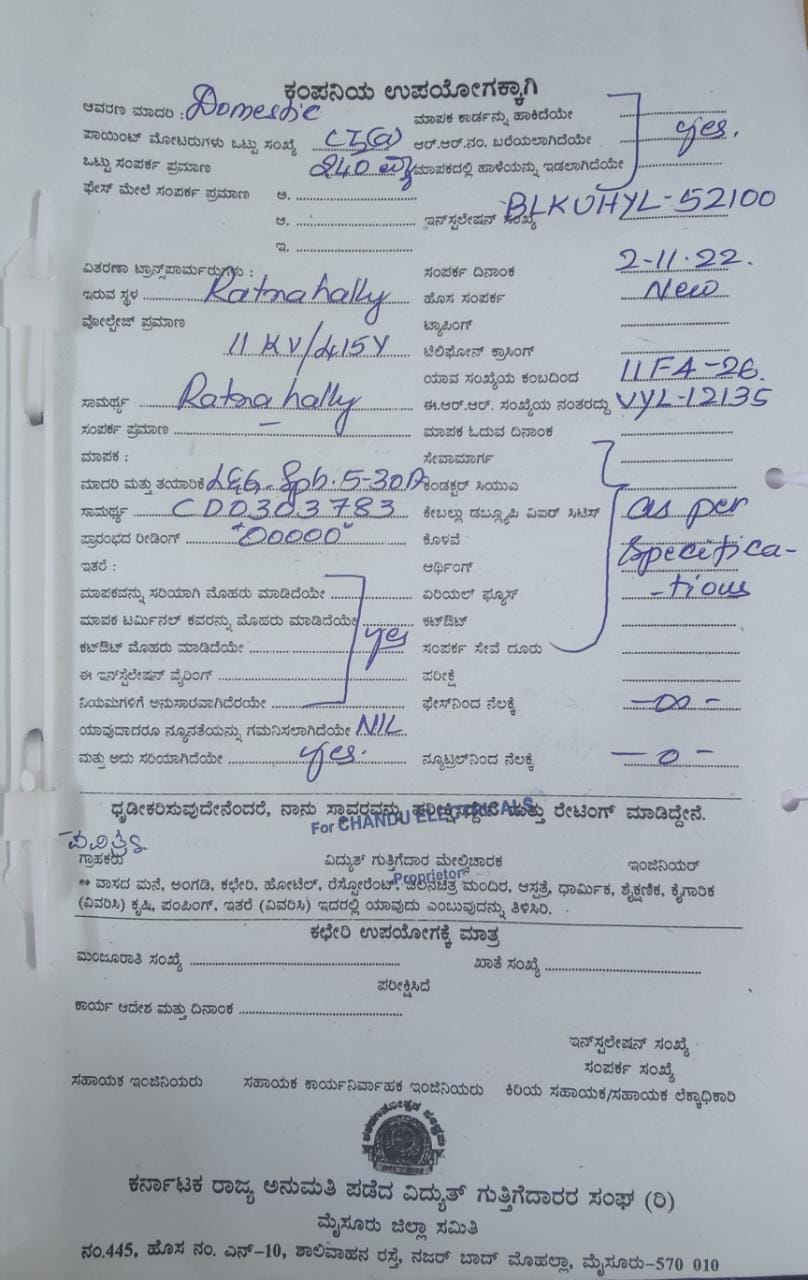 ಕಂಪನಿಯ ಉಪಯೋಗಕ್ಕಾಗಿ
ಆವರಣ ಮಾದರಿ : Domestic ಮಾಪಕ ಕಾರ್ಡನ್ನು ಹಾಕಿದೆಯೇ
ಪಾಯಿಂಟ್ ಮೋಟರುಗಳು ಒಟ್ಟು ಸಂಖ್ಯೆ ಆರ್.ಆರ್.ನಂ. ಬರೆಯಲಾಗಿದೆಯೇ yes.
ಒಟ್ಟು ಸಂಪರ್ಕ ಪ್ರಮಾಣ 240 ಮಾಪಕದಲ್ಲಿ ಹಾಳೆಯನ್ನು ಇಡಲಾಗಿದೆಯೇ
ಫೇಸ್ ಮೇಲೆ ಸಂಪರ್ಕ ಪ್ರಮಾಣ ಅ.
ಆ. ಇನ್‌ಸ್ಟಲೇಷನ್ ಸಂಖ್ಯೆ BLKUHYL-52100
ಇ.
ವಿತರಣಾ ಟ್ರಾನ್ಸ್‌ಪಾರ್ಮರುಗಳು : ಸಂಪರ್ಕ ದಿನಾಂಕ 2-11-22.
ಇರುವ ಸ್ಥಳ Ratnahally ಹೊಸ ಸಂಪರ್ಕ New
ವೋಲ್ಟೇಜ್ ಪ್ರಮಾಣ ಟ್ಯಾಪಿಂಗ್
11 KV/415V ಟೆಲಿಫೋನ್ ಕ್ರಾಸಿಂಗ್
ಯಾವ ಸಂಖ್ಯೆಯ ಕಂಬದಿಂದ 11F4-26.
ಸಾಮರ್ಥ್ಯ Ratnahally ಈ.ಆರ್.ಆರ್. ಸಂಖ್ಯೆಯ ನಂತರದ್ದು VYL-12135
ಸಂಪರ್ಕ ಪ್ರಮಾಣ – ಮಾಪಕ ಓದುವ ದಿನಾಂಕ
ಮಾಪಕ : ಸೇವಾಮಾರ್ಗ
ಮಾದರಿ ಮತ್ತು ತಯಾರಿಕೆ L&G. Sph. 5-30A ಕಂಡಕ್ಟರ್ ಸಿಯುಎ
ಸಾಮರ್ಥ್ಯ CD0303783 ಕೇಬಲ್ಲು ಡಬ್ಲ್ಯೂಪಿ ವಿಐರ್ ಸಿಟಿಸ್ as per
ಪ್ರಾರಂಭದ ರೀಡಿಂಗ್ "00000" ಕೊಳವೆ specifica-
ಇತರೆ : ಆರ್ಥಿಂಗ್
ಮಾಪಕವನ್ನು ಸರಿಯಾಗಿ ಮೊಹರು ಮಾಡಿದೆಯೇ ಏರಿಯಲ್ ಫ್ಯೂಸ್ -tions
ಮಾಪಕ ಟರ್ಮಿನಲ್ ಕವರನ್ನು ಮೊಹರು ಮಾಡಿದೆಯೇ ಕಟ್‌ಔಟ್
ಕಟ್‌ಔಟ್ ಮೊಹರು ಮಾಡಿದೆಯೇ yes ಸಂಪರ್ಕ ಸೇವೆ ದೂರು
ಈ ಇನ್‌ಸ್ಟೆಲೇಷನ್ ವೈರಿಂಗ್ ಪರೀಕ್ಷೆ
ನಿಯಮಗಳಿಗೆ ಅನುಸಾರವಾಗಿದೆರಯೇ ಫೇಸ್‌ನಿಂದ ನೆಲಕ್ಕೆ -∞-
ಯಾವುದಾದರೂ ನ್ಯೂನತೆಯನ್ನು ಗಮನಿಸಲಾಗಿದೆಯೇ NIL.
ಮತ್ತು ಅದು ಸರಿಯಾಗಿದೆಯೇ yes. ನ್ಯೂಟ್ರಲ್‌ನಿಂದ ನೆಲಕ್ಕೆ -0-
ಧೃಡೀಕರಿಸುವುದೇನೆಂದರೆ, ನಾನು ಸ್ಥಾವರವನ್ನು ಪರೀಕ್ಷಿಸಿದ್ದೇನೆ ಮತ್ತು ರೇಟಿಂಗ್ ಮಾಡಿದ್ದೇನೆ.
For CHANDU ELECTRICALS
ಗ್ರಾಹಕರು ವಿದ್ಯುತ್ ಗುತ್ತಿಗೆದಾರ ಮೇಲ್ವಿಚಾರಕ ಇಂಜಿನಿಯರ್
Proprietor
** ವಾಸದ ಮನೆ, ಅಂಗಡಿ, ಕಛೇರಿ, ಹೋಟೆಲ್, ರೆಸ್ಟೋರೆಂಟ್, ಚಲನಚಿತ್ರ ಮಂದಿರ, ಆಸ್ಪತ್ರೆ, ಧಾರ್ಮಿಕ, ಶೈಕ್ಷಣಿಕ, ಕೈಗಾರಿಕ
(ವಿವರಿಸಿ) ಕೃಷಿ, ಪಂಪಿಂಗ್, ಇತರೆ (ವಿವರಿಸಿ) ಇದರಲ್ಲಿ ಯಾವುದು ಎಂಬುವುದನ್ನು ತಿಳಿಸಿರಿ.
ಕಛೇರಿ ಉಪಯೋಗಕ್ಕೆ ಮಾತ್ರ
ಮಂಜೂರಾತಿ ಸಂಖ್ಯೆ ಖಾತೆ ಸಂಖ್ಯೆ
ಪರೀಕ್ಷಿಸಿದೆ
ಕಾರ್ಯ ಆದೇಶ ಮತ್ತು ದಿನಾಂಕ
ಇನ್‌ಸ್ಟಲೇಷನ್ ಸಂಖ್ಯೆ
ಸಂಪರ್ಕ ಸಂಖ್ಯೆ
ಸಹಾಯಕ ಇಂಜಿನಿಯರು ಸಹಾಯಕ ಕಾರ್ಯನಿರ್ವಾಹಕ ಇಂಜಿನಿಯರು ಕಿರಿಯ ಸಹಾಯಕ/ಸಹಾಯಕ ಲೆಕ್ಕಾಧಿಕಾರಿ
ಕರ್ನಾಟಕ ರಾಜ್ಯ ಅನುಮತಿ ಪಡೆದ ವಿದ್ಯುತ್ ಗುತ್ತಿಗೆದಾರರ ಸಂಘ (ರಿ)
ಮೈಸೂರು ಜಿಲ್ಲಾ ಸಮಿತಿ
ನಂ.445, ಹೊಸ ನಂ. ಎನ್-10, ಶಾಲಿವಾಹನ ರಸ್ತೆ, ನಜರ್ ಬಾದ್ ಮೊಹಲ್ಲಾ, ಮೈಸೂರು-570 010